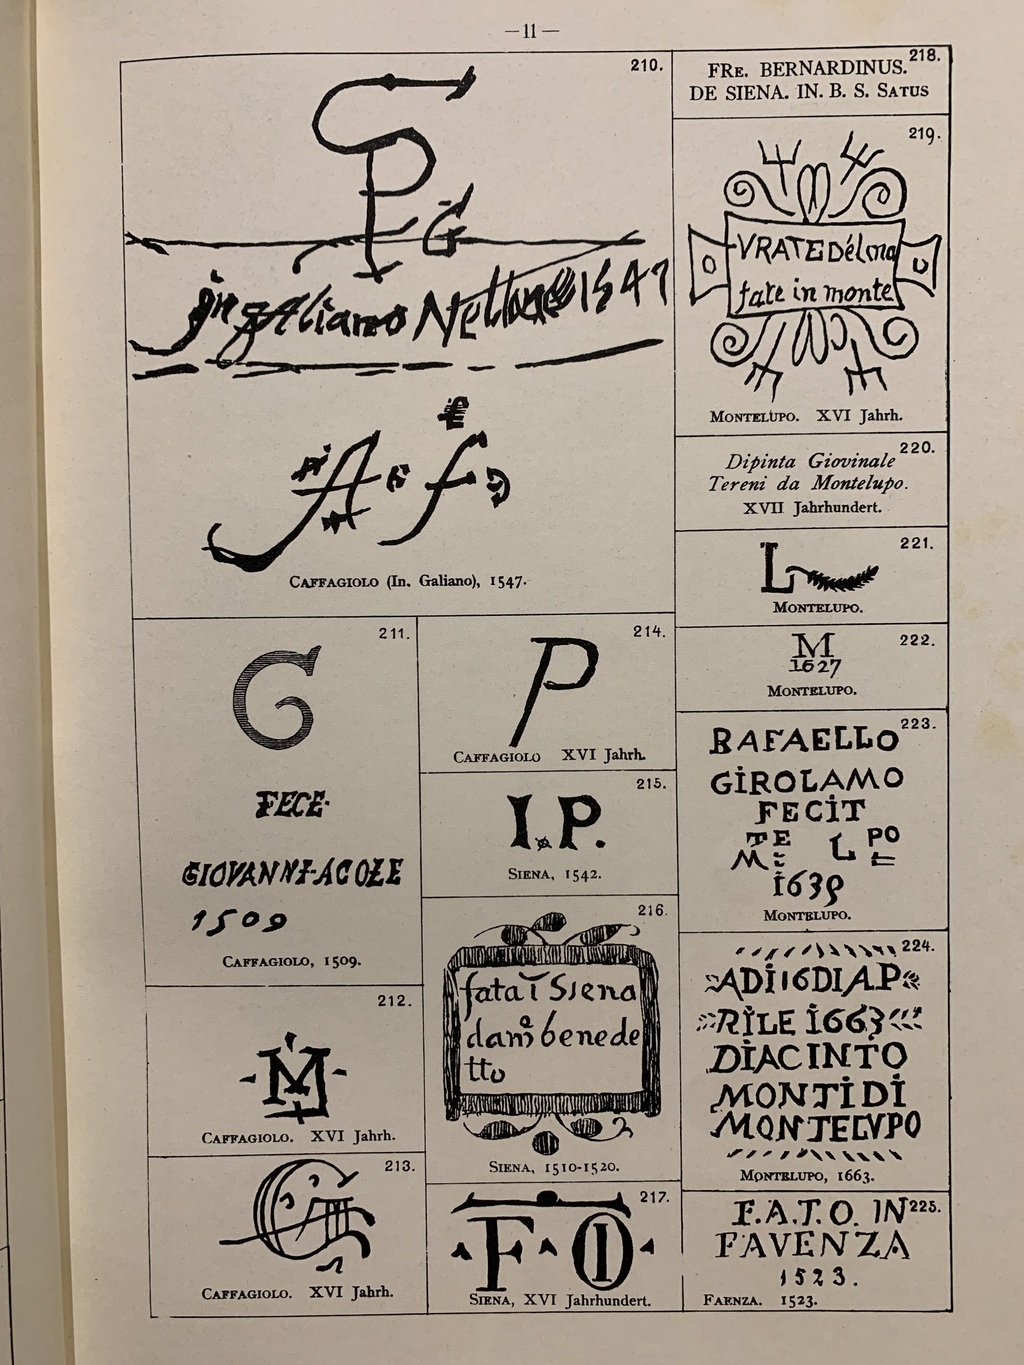 —11—
210.
S
P
G
in galiano Nellane 1547
A f
CAFFAGIOLO (In. Galiano), 1547.
211.
G
FECE·
GIOVANNI·ACOLE
1509
CAFFAGIOLO, 1509.
212.
-M-
CAFFAGIOLO. XVI Jahrh.
213.
CAFFAGIOLO. XVI Jahrh.
214.
P
CAFFAGIOLO XVI Jahrh.
215.
I.P.
SIENA, 1542.
216.
fata ī Siena
dam° benede
tto
SIENA, 1510-1520.
217.
F O I
SIENA, XVI Jahrhundert.
218.
FRE. BERNARDINUS.
DE SIENA. IN. B. S. SATUS
219.
VRATE Délma
fate in monte
MONTELUPO. XVI Jahrh.
220.
Dipinta Giovinale
Tereni da Montelupo.
XVII Jahrhundert.
221.
L
MONTELUPO.
222.
M
1627
MONTELUPO.
223.
RAFAELLO
GIROLAMO
FECIT
TE PO
M L
1639
MONTELUPO.
224.
ADI 16 DI A.P
RILE 1663
DIACINTO
MONTI DI
MONTELVPO
MONTELUPO, 1663.
225.
F.A.T.O. IN
FAVENZA
1523.
FAENZA. 1523.